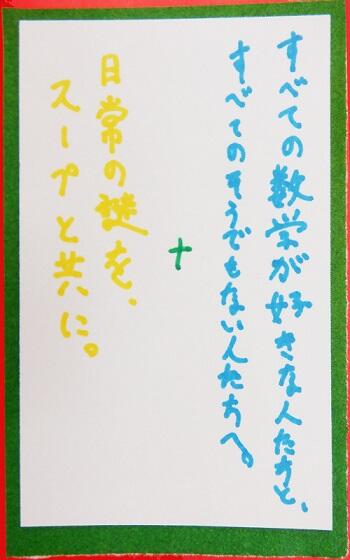 すべての数学が好きな人たちと、
すべてのそうでもない人たちへ。
+
日常の謎を、
スープと共に。